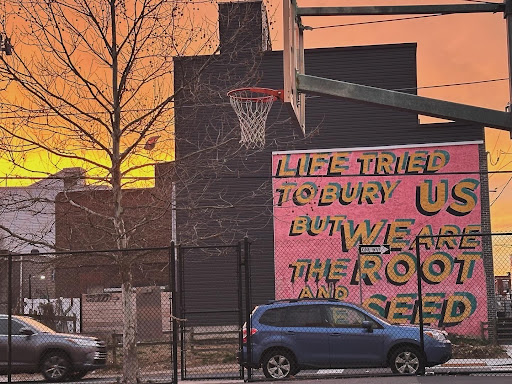 LIFE TRIED
TO BURY US
BUT WE ARE
THE ROOT
AND SEED